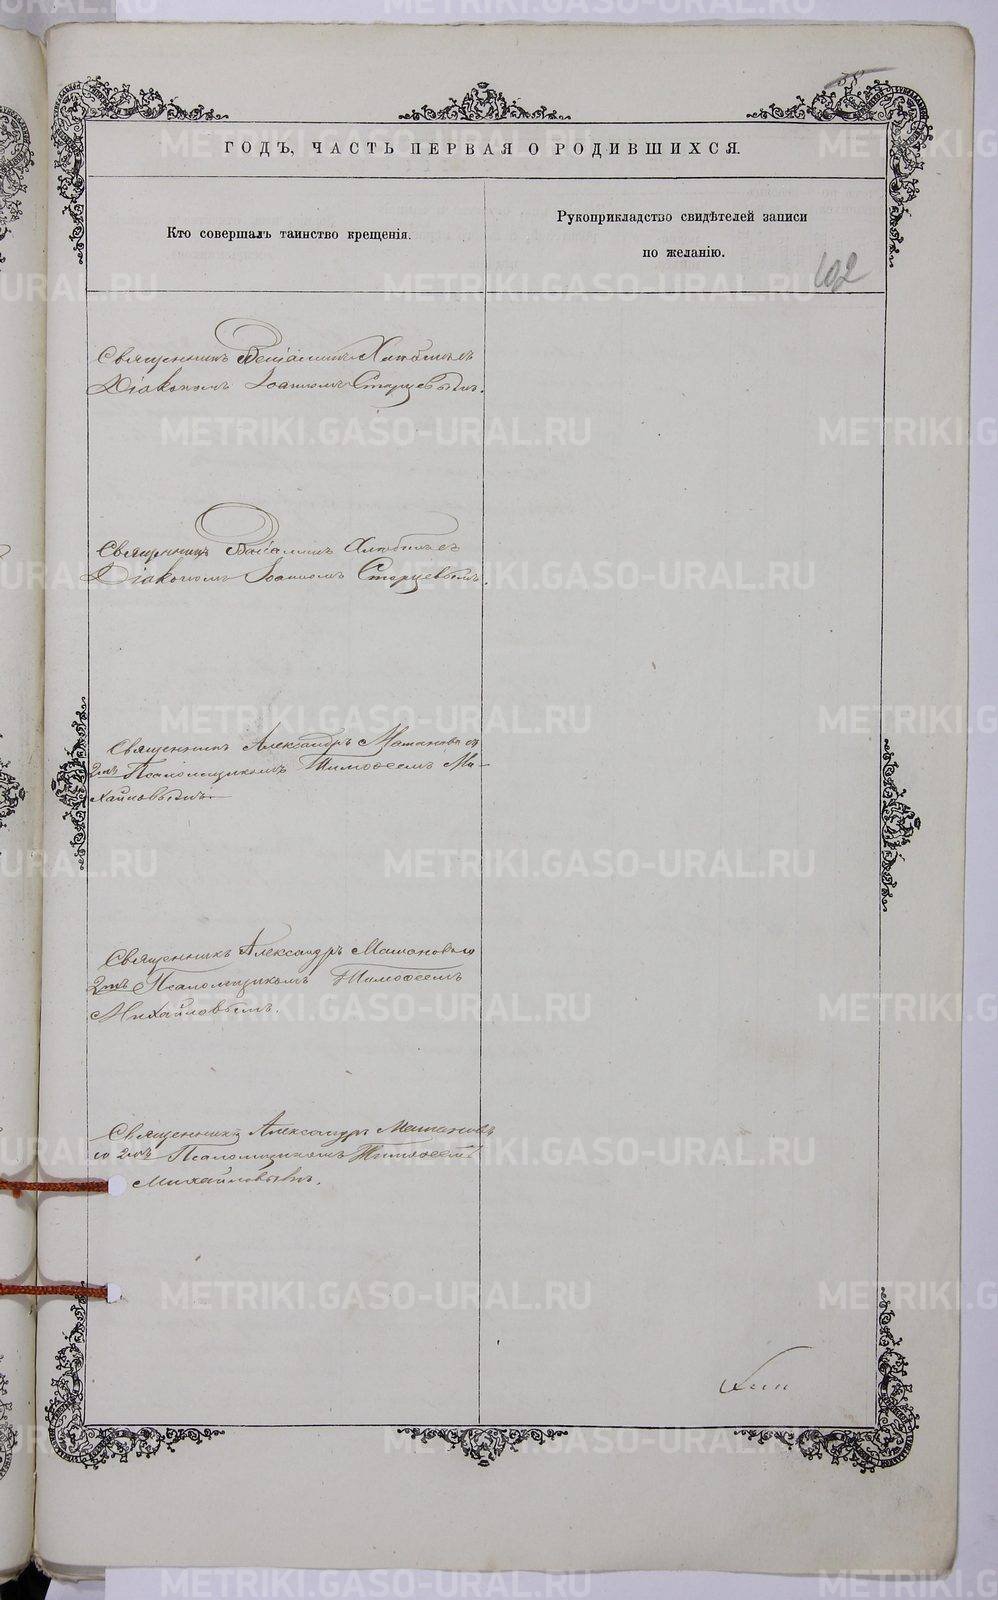 58
ГОДЪ, ЧАСТЬ ПЕРВАЯ О РОДИВШИХСЯ.
Кто совершалъ таинство крещенія.
Рукоприкладство свидѣтелей записи
по желанію.
102
Священникъ Веніаминъ съ
Діакономъ Іоанномъ Старцевымъ.
Священникъ Веніаминъ съ
Діакономъ Іоанномъ Старцевымъ.
Священникъ Александръ Мамановъ съ
2мъ Псаломщикомъ Тимоѳеемъ Ми-
хайловымъ
Священникъ Александръ Мамановъ со
2мъ Псаломщикомъ Тимоѳеемъ
Михайловымъ.
Священникъ Александръ Мамановъ
со 2мъ Псаломщикомъ Тимоѳеемъ
Михайловымъ.
METRIKI.GASO-URAL.RU